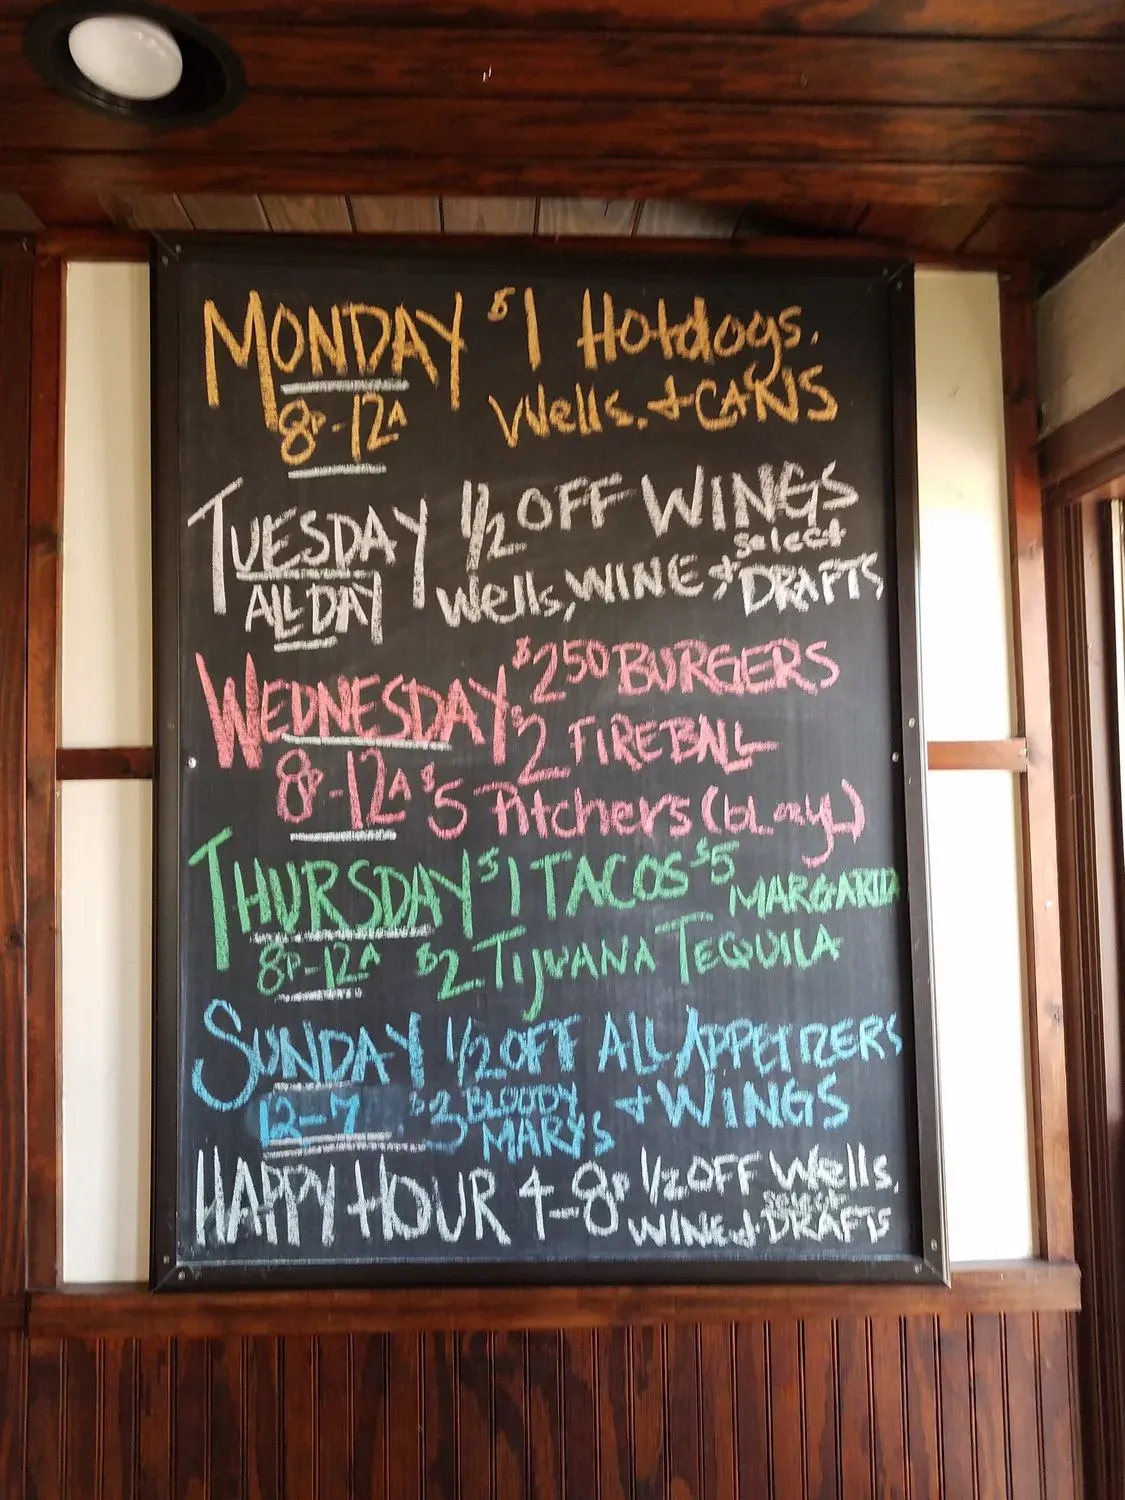 MONDAY $1 Hotdogs.
8P-12A Wells. + CANS
TUESDAY 1/2 OFF WINGS
ALL DAY Wells, WINE + select DRAFTS
WEDNESDAY $250 BURGERS
$2 FIREBALL
8P-12A $5 Pitchers
THURSDAY $1 TACOS $5 MARGARITA
8P-12A $2 TIJUANA TEQUILA
SUNDAY 1/2 OFF ALL APPETIZERS
12-7 BLOODY MARYS + WINGS
HAPPY HOUR 4-8P 1/2 OFF Wells,
WINE + select DRAFTS